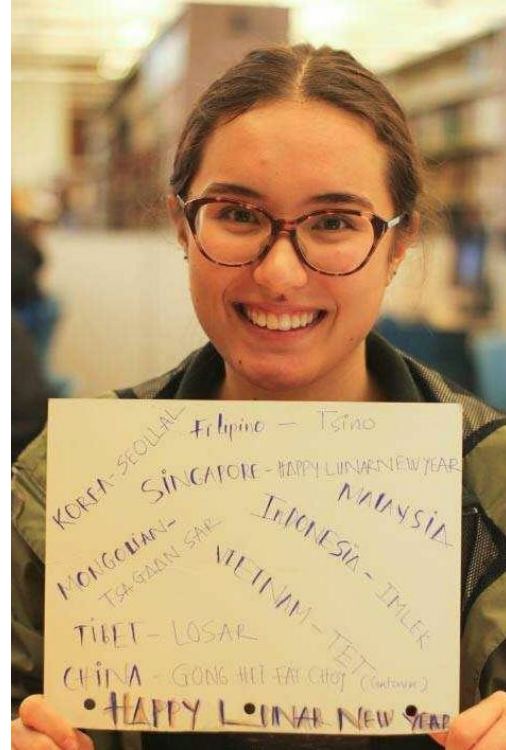 Filipino - Tsino
KOREA - SEOLLAL
SINGAPORE - HAPPY LUNAR NEW YEAR
MALAYSIA
MONGOLIAN - TSAGAAN SAR
INDONESIA - IMLEK
VIETNAM - TET
TIBET - LOSAR
CHINA - GONG HEI FAT CHOY (Cantonese)
HAPPY LUNAR NEW YEAR